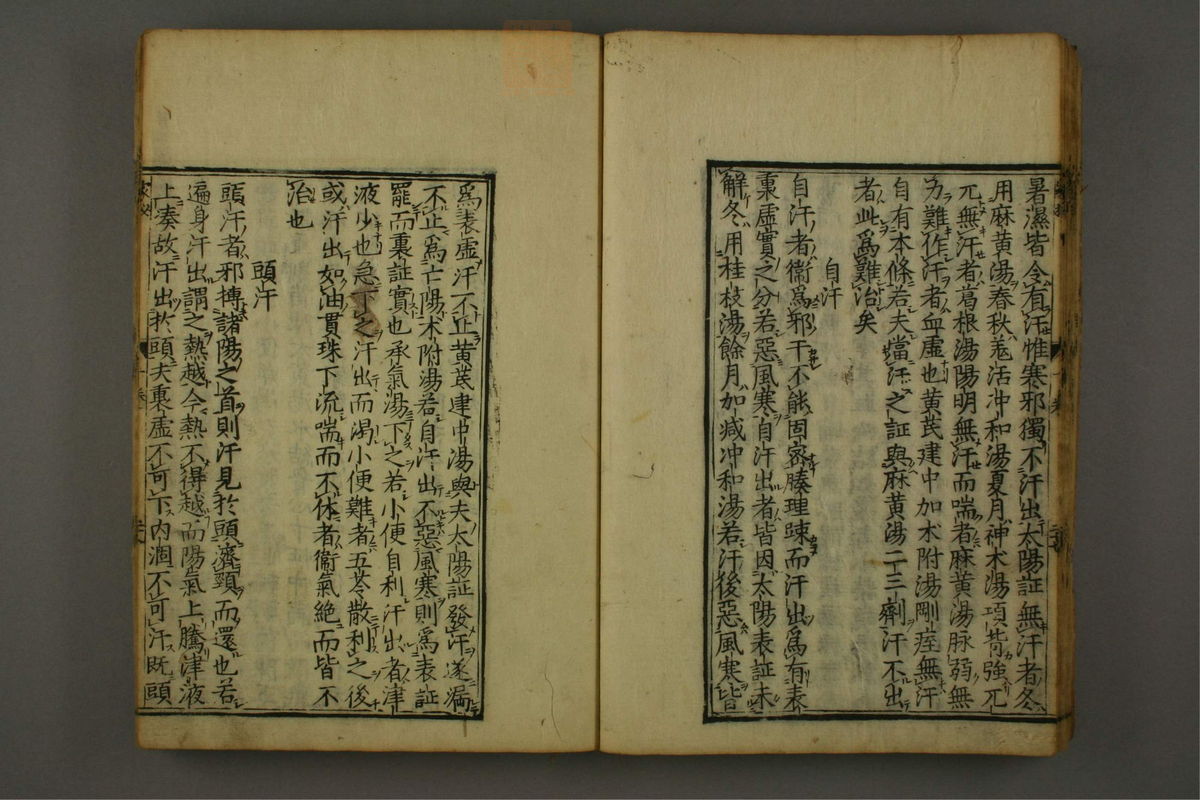 暑濕皆令有汗惟寒邪獨不汗出太陽証無汗者冬
用麻黄湯春秋羗活冲和湯夏月神术湯項背強兀
兀無汗者葛根湯陽明無汗而喘者麻黄湯脉弱無
力難作汗者血虚也黄茋建中加术附湯剛痓無汗
自有本條若夫當汗之証與麻黄湯二三劑汗不出
者此爲難治矣
自汗
自汗者衞爲邪干不能固密腠理踈而汗出爲有表
裏虚實之分若惡風寒自汗出者皆因太陽表証未
解冬用桂枝湯餘月加减冲和湯若汗後惡風寒皆
爲表虚汗不止黄茋建中湯與夫太陽証發汗遂漏
不止爲亡陽术附湯若自汗出不惡風寒則爲表証
罷而裏証實也承氣湯下之若小便自利汗出者津
液少也急下之汗出而渇小便難者五苓散利之後
或汗出如油貫珠下流喘而不休者衞氣絶而皆不
治也
頭汗
頭汗者邪搏諸陽之首則汗見於頭濟頸而還也若
遍身汗出謂之熱越今熱不得越而陽氣上騰津液
上凑故汗出於頭夫裏虚不可下内涸不可汗既頭